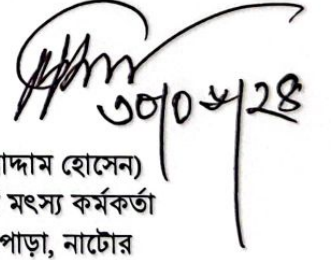 ৩০/০৮/২৪
াদ্দাম হোসেন)
মৎস্য কর্মকর্তা
পাড়া, নাটোর